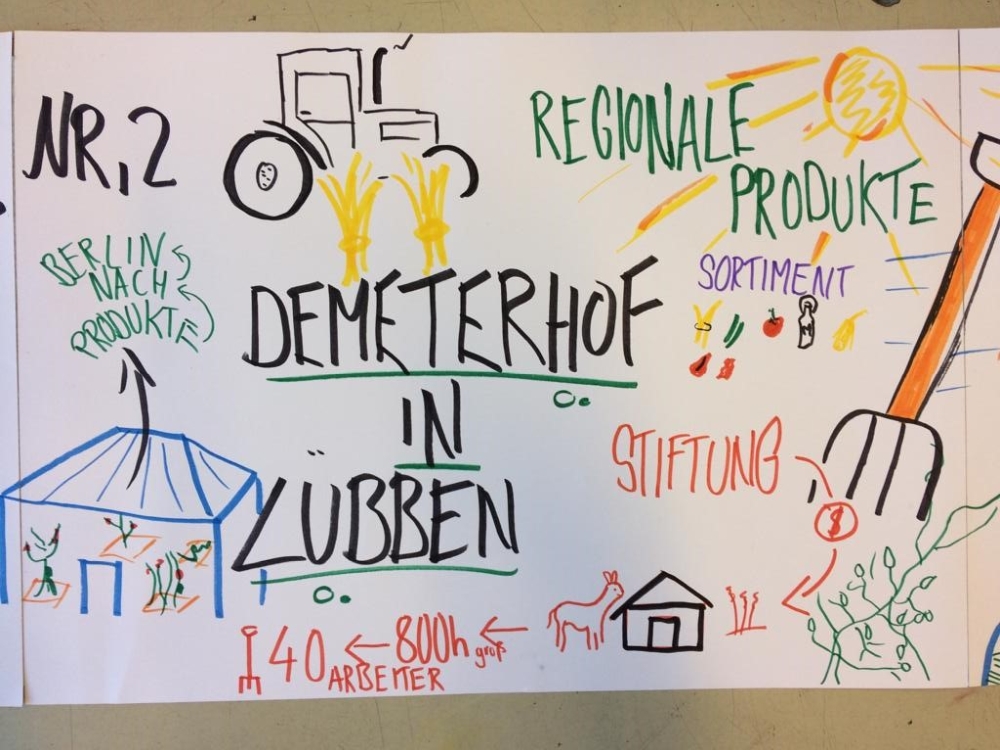 NR, 2
REGIONALE
PRODUKTE
BERLIN
NACH
PRODUKTE
SORTIMENT
DEMETERHOF
IN
LÜBBEN
STIFTUNG
$
40 ARBEITER
800h
groß